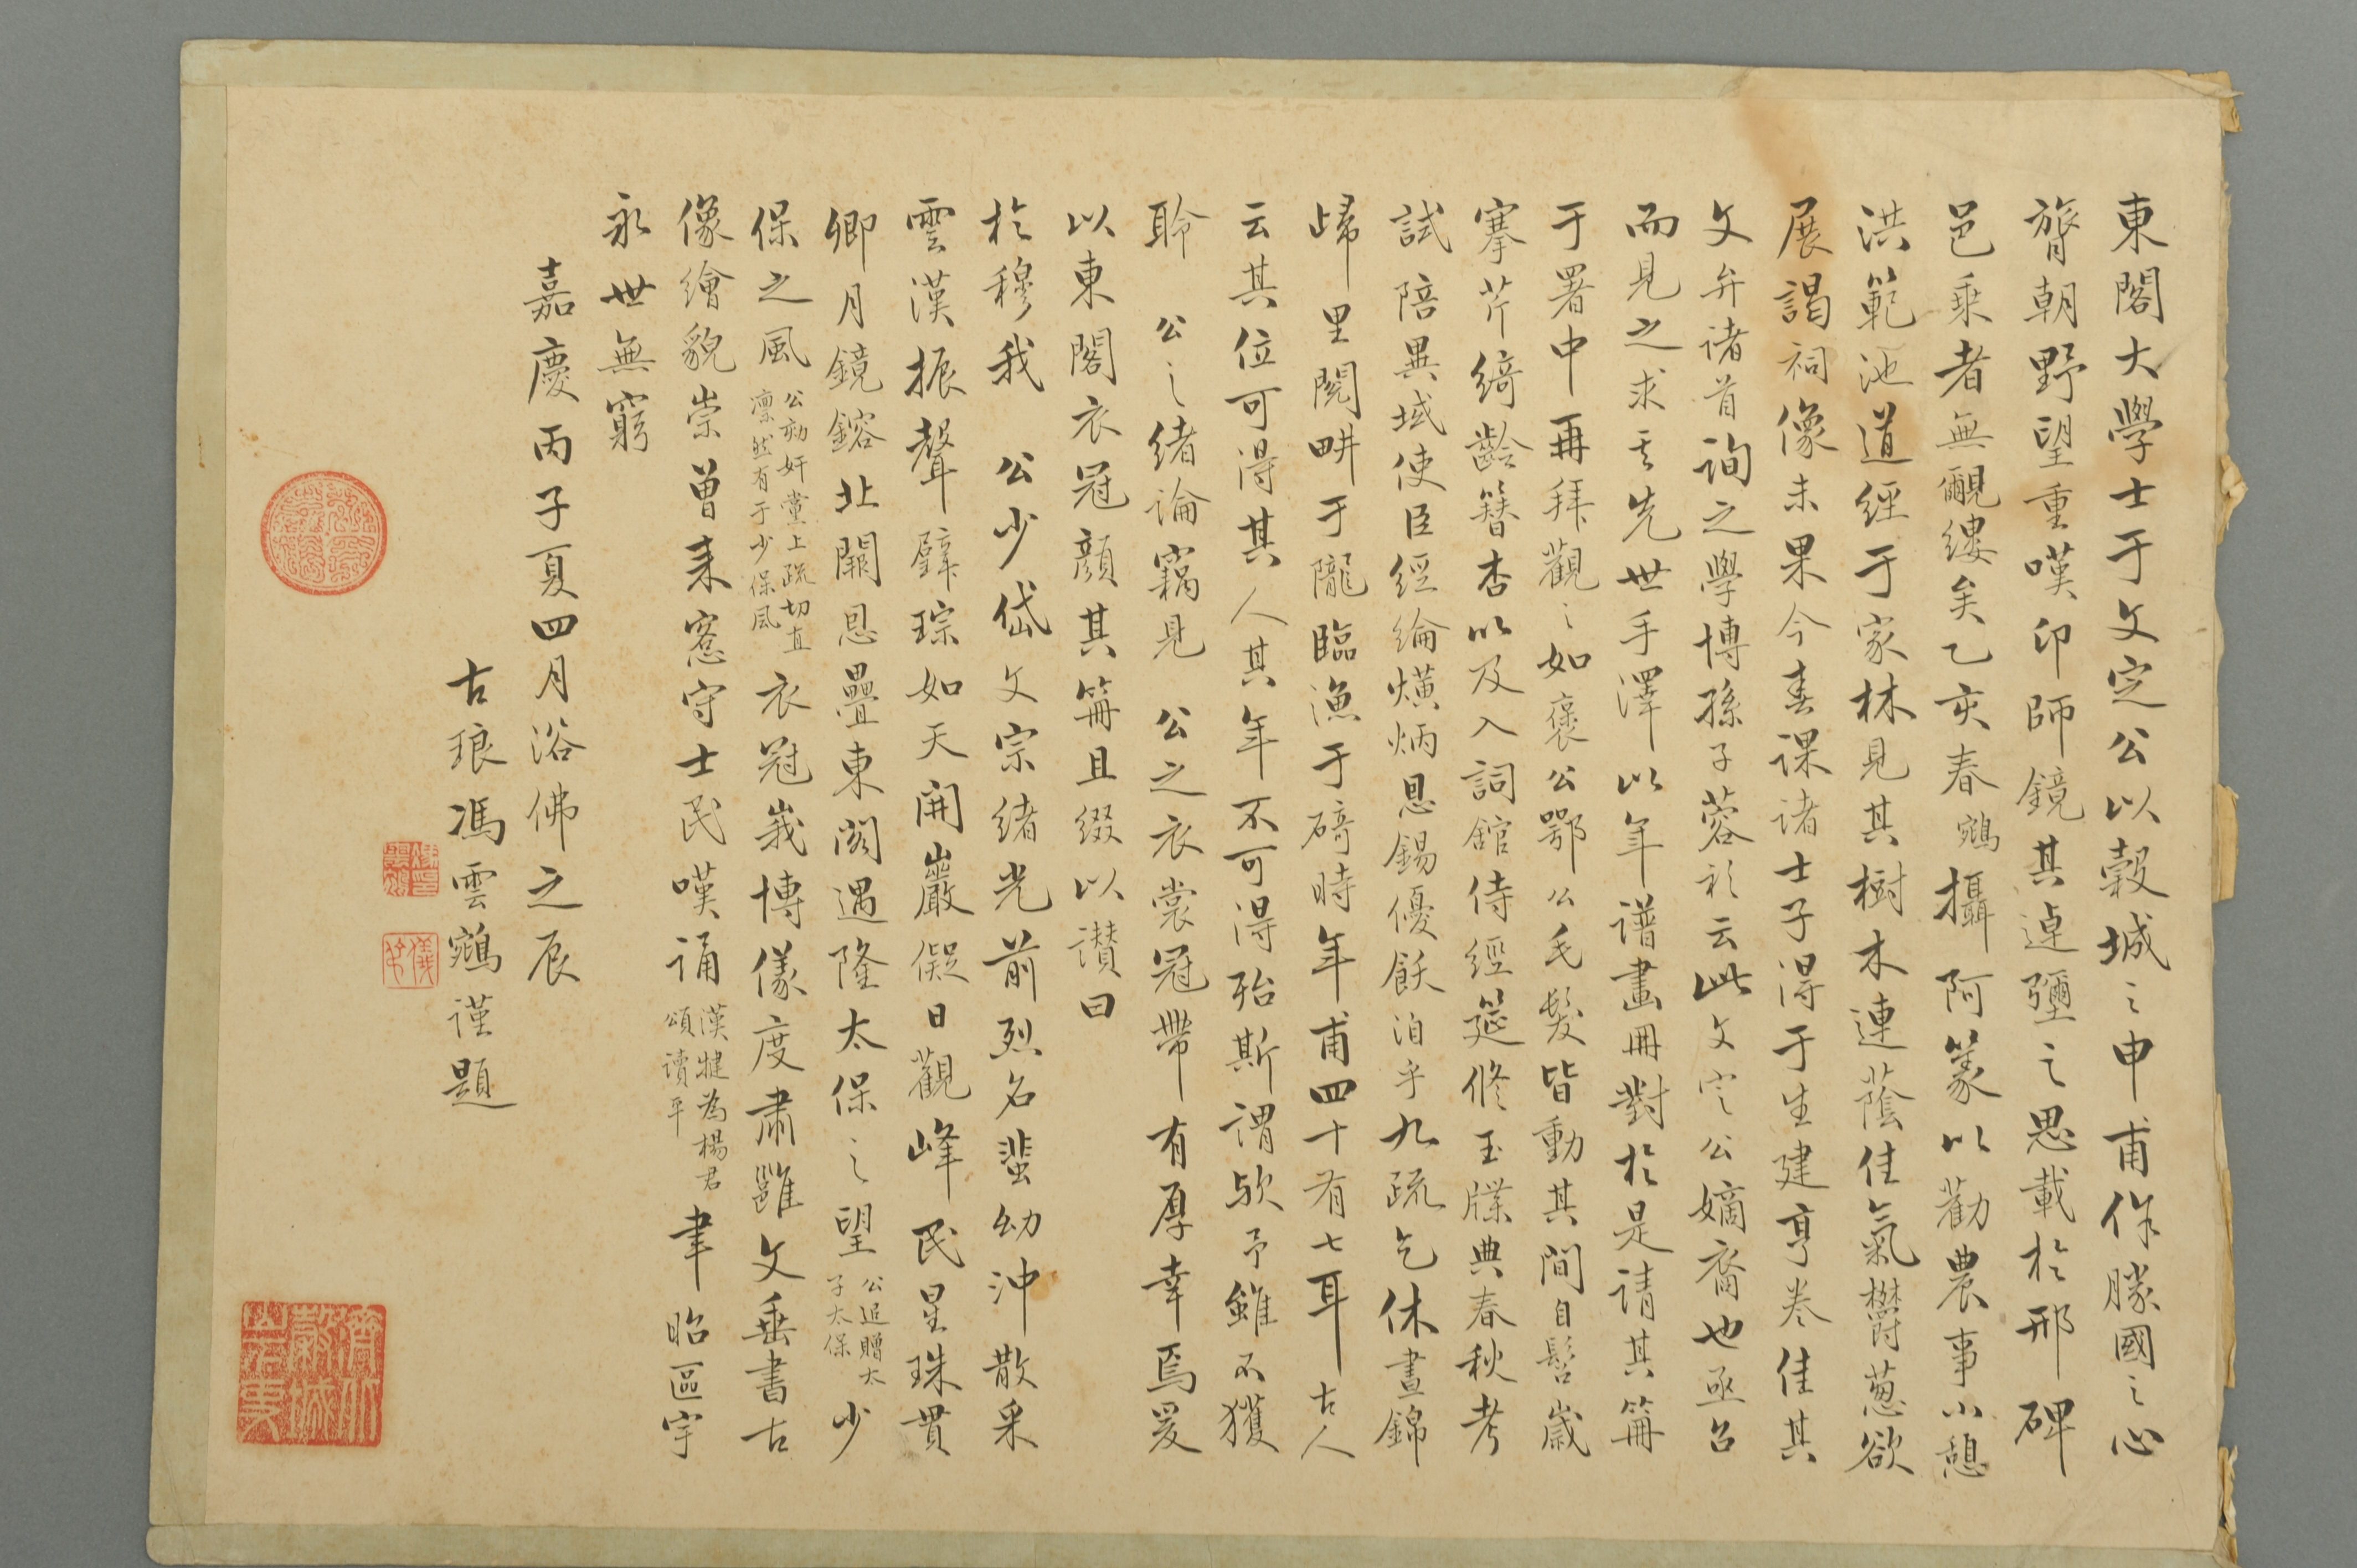 東閣大學士于文定公以穀城之申甫作勝國之心
膂朝野望重嘆印師鏡其過彊之思載於邢碑
邑乘者無覼縷矣乙亥春鵷攝阿篆以勸農事小憩
洪範池道經于家林見其樹木連蔭佳氣欝葱欲
展謁祠像未果今春課諸士子得于生建亨卷佳其
文弁諸首詢之學博孫子蓉衫云此文定公嫡裔也亟召
而見之求其先世手澤以年譜畫冊對於是請其篇
于署中再拜觀之如褒公鄂公毛髮皆動其間自髫歲
搴芹綺齡簪杏以及入詞館侍經筵修玉牒典春秋考
試陪異域使臣經綸燐炳恩錫優飫洎乎九疏乞休晝錦
歸里閱畊于隴臨漁于碕時年甫四十有七耳古人
云其位可得其人其年不可得殆斯謂歟予雖不獲
聆 公之緒論竊見 公之衣裳冠帶有厚幸焉爰
以東閣衣冠顏其篇且綴以讃曰
於穆我 公少岱文宗緒光前烈名蜚幼沖散采
雲漢振聲璧琮如天開巖儗日觀峰民星珠貫
卿月鏡鎔北闕恩疊東閣遇隆太保之望公追贈太子太保少
保之風公劾奸黨上疏切直凛然有于少保風衣冠峩博儀度肅雝文垂書古
像繪貌崇曾来窻守士民嘆誦漢犍為楊君頌讀平聿昭區宇
永世無窮
嘉慶丙子夏四月浴佛之辰
古琅馮雲鵷謹題